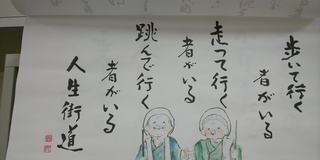 歩いて行く
者がいる
走って行く
者がいる
跳んで行く
者がいる
人生街道